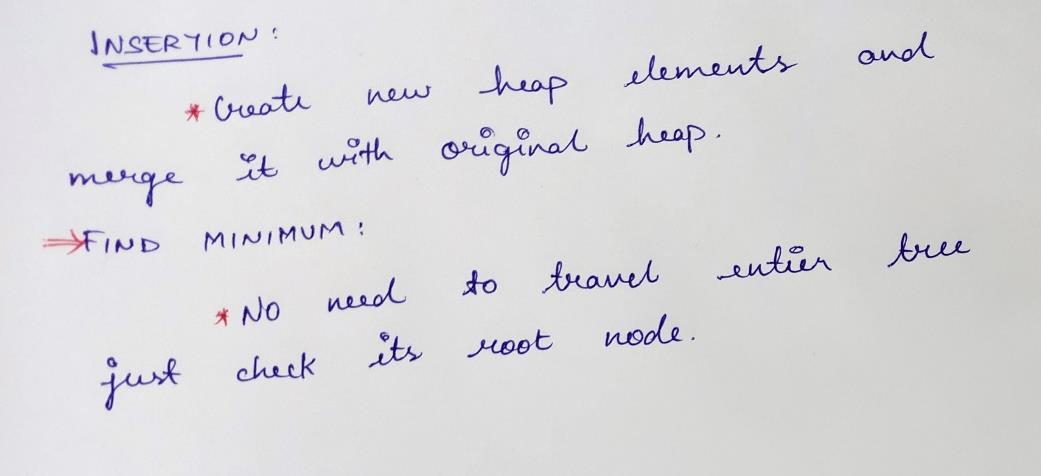 INSERTION:
* Create new heap elements and
merge it with original heap.
⇒FIND MINIMUM:
* No need to travel entier tree
just check its root node.